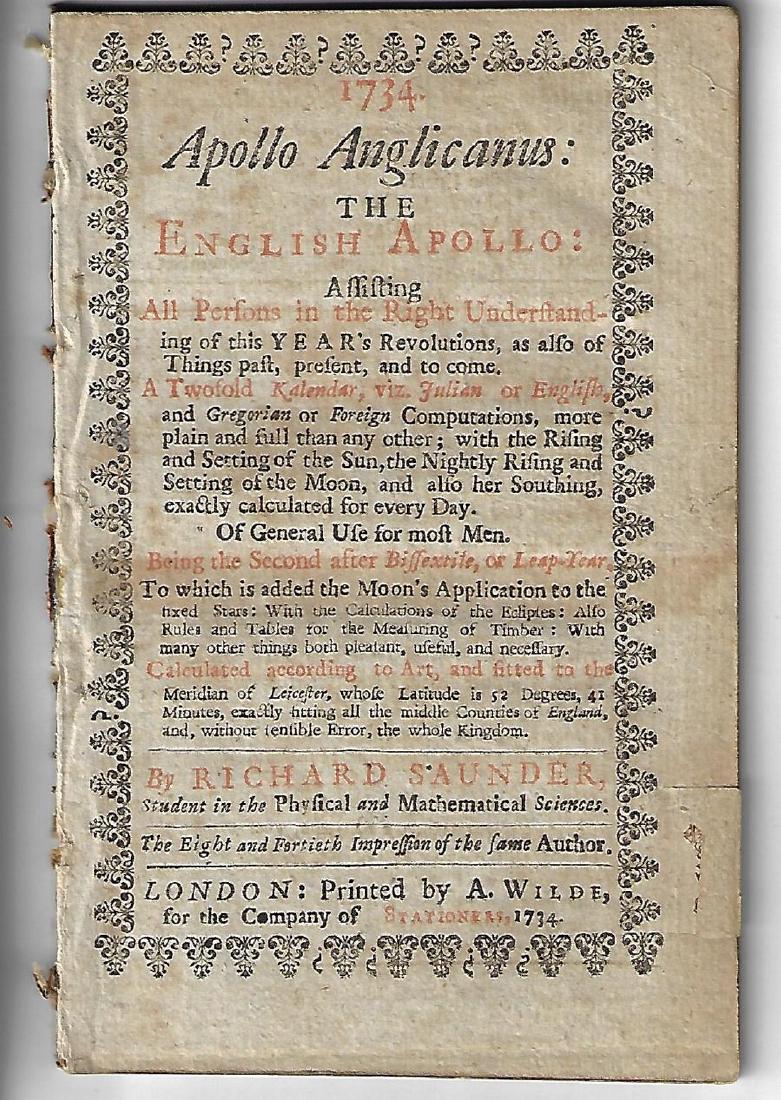 1734.
Apollo Anglicanus:
THE
ENGLISH APOLLO:
Aſſiſting
All Perſons in the Right Underſtand-
ing of this YEAR's Revolutions, as alſo of
Things paſt, preſent, and to come.
A Twofold Kalendar, viz. Julian or Engliſh,
and Gregorian or Foreign Computations, more
plain and full than any other; with the Riſing
and Setting of the Sun, the Nightly Riſing and
Setting of the Moon, and alſo her Southing,
exactly calculated for every Day.
Of General Uſe for moſt Men.
Being the Second after Biſſextile, or Leap-Year.
To which is added the Moon's Application to the
fixed Stars: With the Calculations of the Eclipſes: Alſo
Rules and Tables for the Meaſuring of Timber: With
many other things both pleaſant, uſeful, and neceſſary.
Calculated according to Art, and fitted to the
Meridian of Leiceſter, whoſe Latitude is 52 Degrees, 41
Minutes, exactly fitting all the middle Counties of England,
and, without ſenſible Error, the whole Kingdom.
By RICHARD SAUNDER,
Student in the Phyſical and Mathematical Sciences.
The Eight and Fortieth Impreſſion of the ſame Author.
LONDON: Printed by A. WILDE,
for the Company of STATIONERS, 1734.